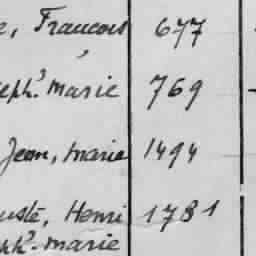 François 677
seph. marie 769
Jean, marie 1494
uste, Henri 1781
ph. marie